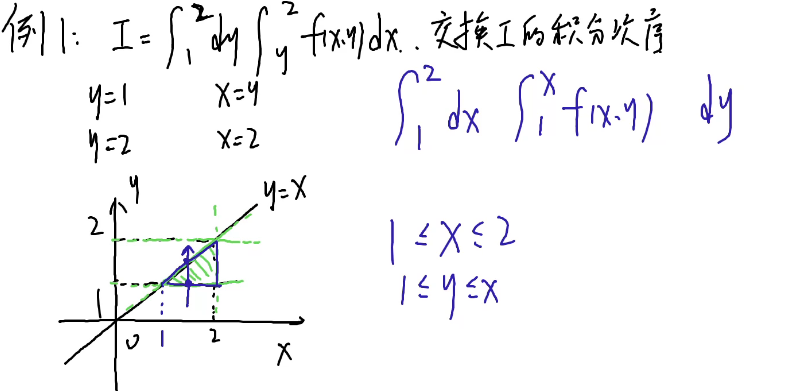 例1: I=∫₁²dy∫y²f(x,y)dx..交换I的积分次序
y=1 x=y
y=2 x=2
∫₁²dx ∫₁ˣf(x,y) dy
y
y=x
2
1≤x≤2
1≤y≤x
1
0 1 2
x